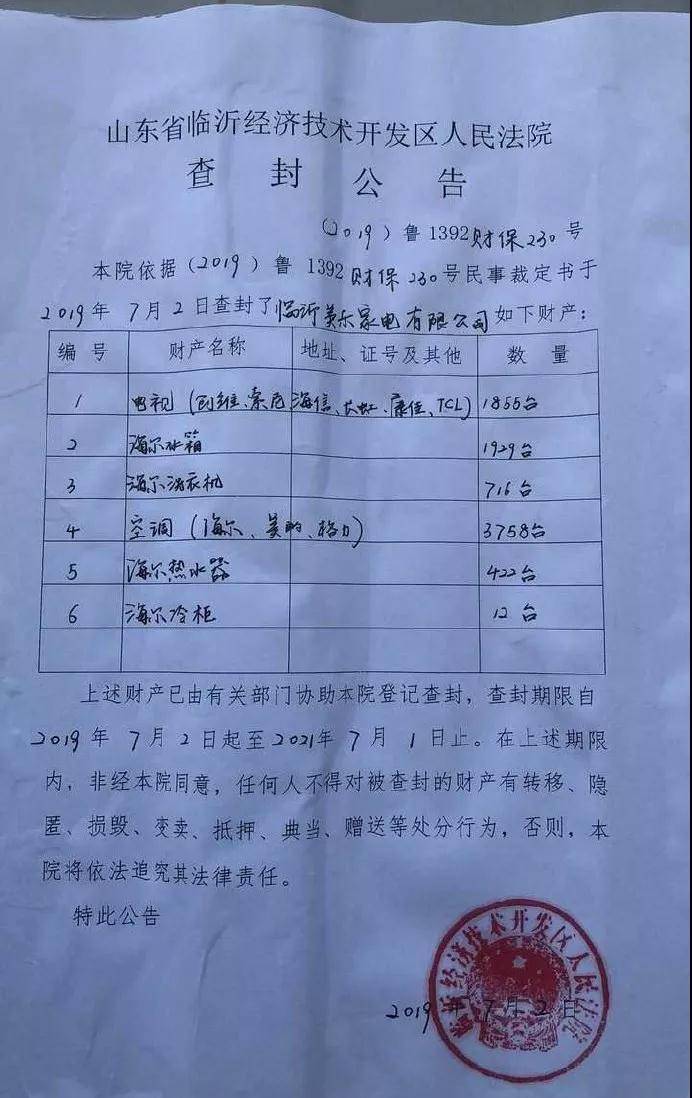 山东省临沂经济技术开发区人民法院
查封公告
(2019)鲁1392财保230号
本院依据(2019)鲁1392财保230号民事裁定书于
2019年7月2日查封了临沂美乐家电有限公司如下财产:
编号 财产名称 地址、证号及其他 数量
1 电视(创维、索尼、海信、长虹、康佳、TCL) 1855台
2 海尔冰箱 1929台
3 海尔洗衣机 716台
4 空调(海尔、美的、格力) 3758台
5 海尔热水器 422台
6 海尔冷柜 12台
上述财产已由有关部门协助本院登记查封,查封期限自
2019年7月2日起至2021年7月1日止。在上述期限
内,非经本院同意,任何人不得对被查封的财产有转移、隐
匿、损毁、变卖、抵押、典当、赠送等处分行为,否则,本
院将依法追究其法律责任。
特此公告
临沂经济技术开发区人民法院
2019年7月2日